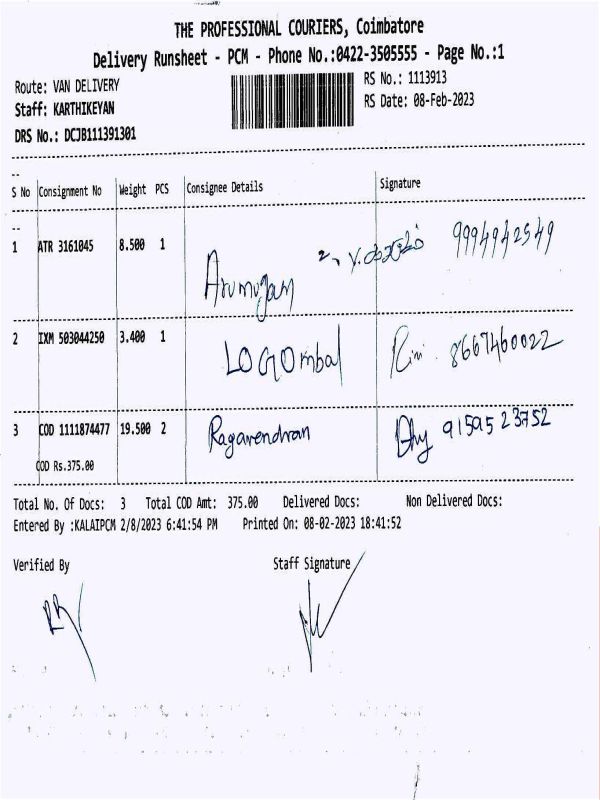 THE PROFESSIONAL COURIERS, Coimbatore
Delivery Runsheet - PCM - Phone No.:0422-3505555 - Page No.:1
Route: VAN DELIVERY
RS No.: 1113913
Staff: KARTHIKEYAN
RS Date: 08-Feb-2023
DRS No.: DCJB111391301
S No Consignment No Weight PCS Consignee Details Signature
1 ATR 3161045 8.500 1 Arumugam 9994942549
2 IXM 503044250 3.400 1 LOGOmbal 8667460022
3 COD 1111874477 19.500 2 Ragavendran 9159523752
COD Rs.375.00
Total No. Of Docs: 3 Total COD Amt: 375.00 Delivered Docs: Non Delivered Docs:
Entered By :KALAIPCM 2/8/2023 6:41:54 PM Printed On: 08-02-2023 18:41:52
Verified By Staff Signature